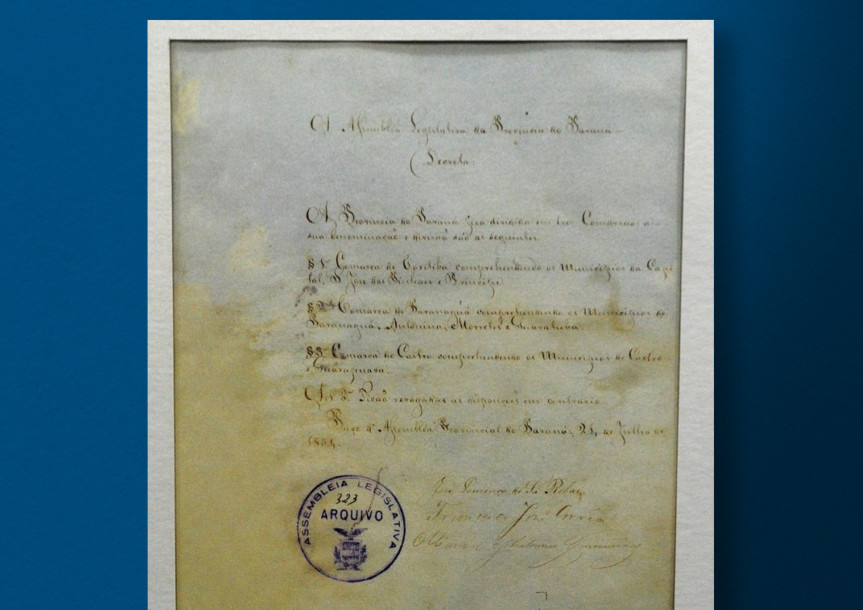 A Assemblea Legislativa da Provincia do Paraná
Decreta:
A Provincia do Paraná fica dividida em tres Comarcas: a
sua denominação e divisão são as seguintes
§ 1º Comarca de Coritiba comprehendendo os Municipios da Capi
tal, S José dos Pinhaes e Principe.
§ 2º Comarca de Paranaguá comprehendendo os Municipios de
Paranaguá, Antonina, Morretes e Guaratuba.
§ 3º Comarca de Castro comprehendendo os Municipios de Castro
e Guarapuava.
Art 2º Ficão revogadas as disposições em contrario.
Paço d' Assemblea Provincial do Paraná, 21, de Julho de
1854.
José Lourenço de Sá Ribas
Francisco José Corrêa
ASSEMBLEIA LEGISLATIVA
323
ARQUIVO